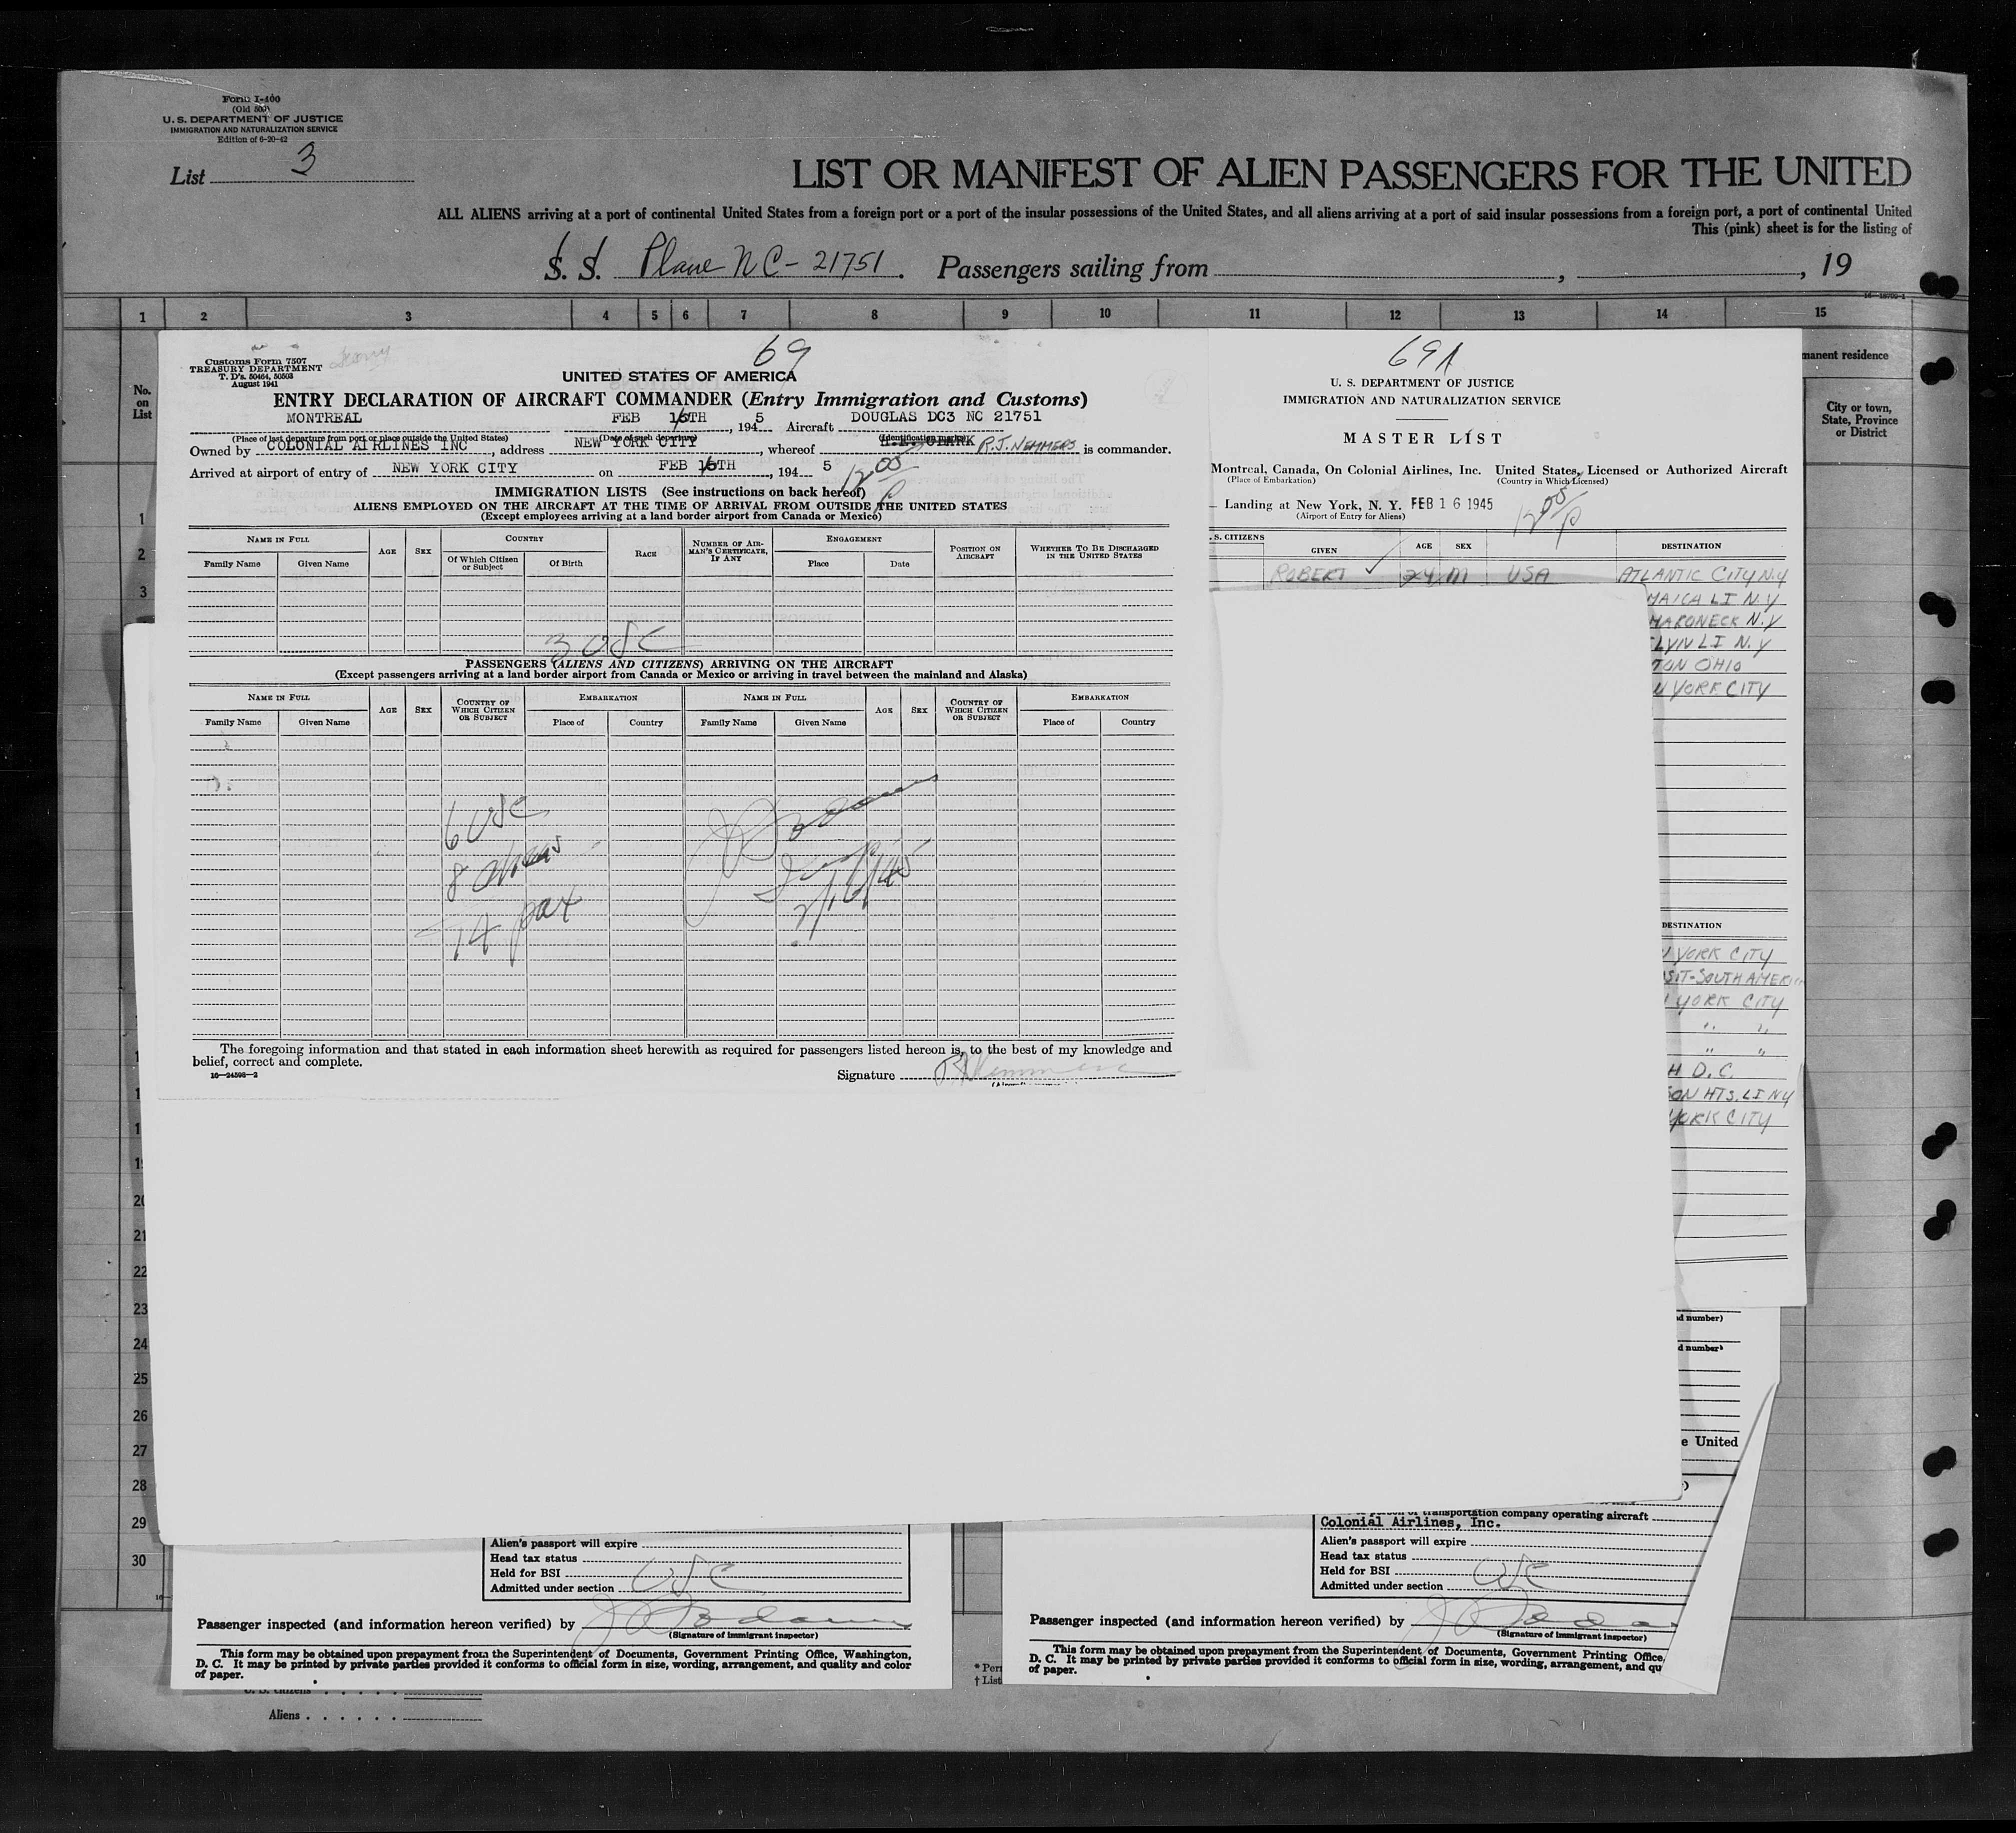 Form I-400
(Old 500)
U. S. DEPARTMENT OF JUSTICE
IMMIGRATION AND NATURALIZATION SERVICE
Edition of 6-20-42
List 3
LIST OR MANIFEST OF ALIEN PASSENGERS FOR THE UNITED
ALL ALIENS arriving at a port of continental United States from a foreign port or a port of the insular possessions of the United States, and all aliens arriving at a port of said insular possessions from a foreign port, a port of continental United
This (pink) sheet is for the listing of
S. S. Plane NC-21751. Passengers sailing from , , 19
1 2 3 4 5 6 7 8 9 10 11 12 13 14 15
No. on List
manent residence
City or town, State, Province or District
1
2
3
20
21
22
23
24
25
26
27
28
29
30
69
Customs Form 7507
TREASURY DEPARTMENT
T. D's. 50464, 50503
August 1941
UNITED STATES OF AMERICA
ENTRY DECLARATION OF AIRCRAFT COMMANDER (Entry Immigration and Customs)
MONTREAL FEB 16TH, 1945 Aircraft DOUGLAS DC3 NC 21751
(Place of last departure from port or place outside the United States) (Date of such departure) (Identification marks)
Owned by COLONIAL AIRLINES INC, address NEW YORK CITY, whereof CLARK R.J. NEMMERS is commander.
Arrived at airport of entry of NEW YORK CITY on FEB 16TH, 194 5 12 05 P
IMMIGRATION LISTS (See instructions on back hereof)
ALIENS EMPLOYED ON THE AIRCRAFT AT THE TIME OF ARRIVAL FROM OUTSIDE THE UNITED STATES
(Except employees arriving at a land border airport from Canada or Mexico)
NAME IN FULL AGE SEX COUNTRY RACE NUMBER OF AIRMAN'S CERTIFICATE, IF ANY ENGAGEMENT POSITION ON AIRCRAFT WHETHER TO BE DISCHARGED IN THE UNITED STATES
Family Name Given Name Of Which Citizen or Subject Of Birth Place Date
3 USC
PASSENGERS (ALIENS AND CITIZENS) ARRIVING ON THE AIRCRAFT
(Except passengers arriving at a land border airport from Canada or Mexico or arriving in travel between the mainland and Alaska)
NAME IN FULL AGE SEX COUNTRY OF WHICH CITIZEN OR SUBJECT EMBARKATION NAME IN FULL AGE SEX COUNTRY OF WHICH CITIZEN OR SUBJECT EMBARKATION
Family Name Given Name Place of Country Family Name Given Name Place of Country
6 USC
8 aliens
14 pax
2/16/45
The foregoing information and that stated in each information sheet herewith as required for passengers listed hereon is, to the best of my knowledge and
belief, correct and complete.
16—24598-2
Signature RJNemmers
69A
U. S. DEPARTMENT OF JUSTICE
IMMIGRATION AND NATURALIZATION SERVICE
MASTER LIST
Montreal, Canada, On Colonial Airlines, Inc. United States, Licensed or Authorized Aircraft
(Place of Embarkation) (Country in Which Licensed)
Landing at New York, N. Y. FEB 16 1945 12 05 P
(Airport of Entry for Aliens)
. S. CITIZENS
GIVEN AGE SEX DESTINATION
ROBERT 24 M USA ATLANTIC CITY N.Y
MAICA LI N.Y
MARONECK N.Y
LYN LI N.Y
TON OHIO
W YORK CITY
DESTINATION
YORK CITY
SIT-SOUTH AMERI
YORK CITY
" "
" "
H D.C.
SON HTS. LI NY
YORK CITY
d number)
d number)
e United
transportation company operating aircraft
Alien's passport will expire
Head tax status
Held for BSI
Admitted under section USC
Passenger inspected (and information hereon verified) by
(Signature of immigrant inspector)
This form may be obtained upon prepayment from the Superintendent of Documents, Government Printing Office, Washington,
D. C. It may be printed by private parties provided it conforms to official form in size, wording, arrangement, and quality and color
of paper.
Colonial Airlines, Inc.
Alien's passport will expire
Head tax status
Held for BSI
Admitted under section USC
Passenger inspected (and information hereon verified) by
(Signature of immigrant inspector)
This form may be obtained upon prepayment from the Superintendent of Documents, Government Printing Office,
D. C. It may be printed by private parties provided it conforms to official form in size, wording, arrangement, and qu
of paper.
* Per
† List
U. S. citizens
Aliens